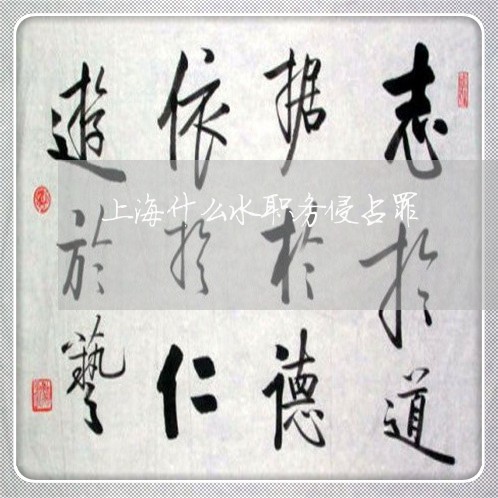 志於道
据於德
依於仁
遊於藝
上海什么水职务侵占罪